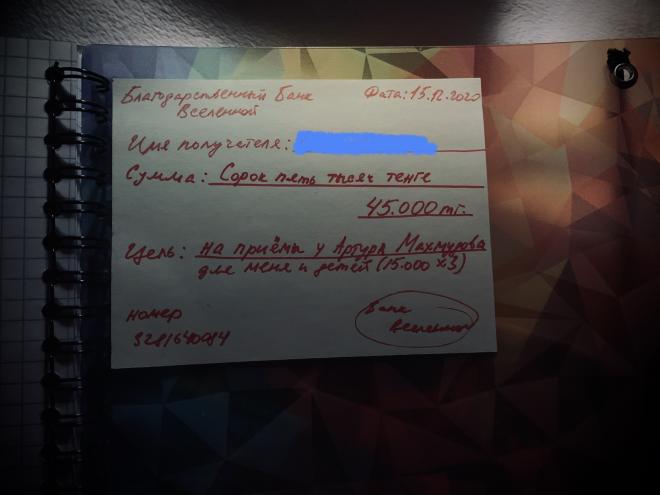 Благодарственный Банк Вселенной
Дата: 15.12.2020
Имя получателя:
Сумма: Сорок пять тысяч тенге
45.000 тг.
Цель: на приёмы у Артура Махмурова
для меня и детей (15.000 х 3)
номер
3281640984
Банк
Вселенной